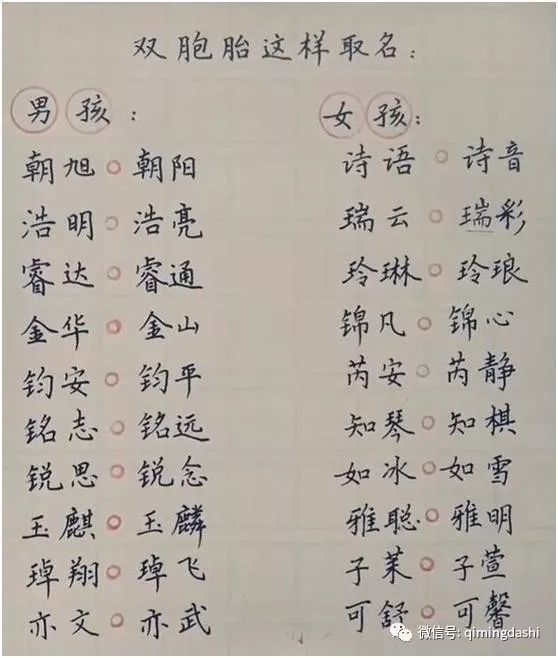 双胞胎这样取名：
男孩：
朝旭○朝阳
浩明○浩亮
睿达○睿通
金华○金山
钧安○钧平
铭志○铭远
锐思○锐念
玉麒○玉麟
琸翔○琸飞
亦文○亦武
女孩：
诗语○诗音
瑞云○瑞彩
玲琳○玲琅
锦凡○锦心
芮安○芮静
知琴○知棋
如冰○如雪
雅聪○雅明
子茉○子萱
可舒○可馨
微信号: qimingdashi